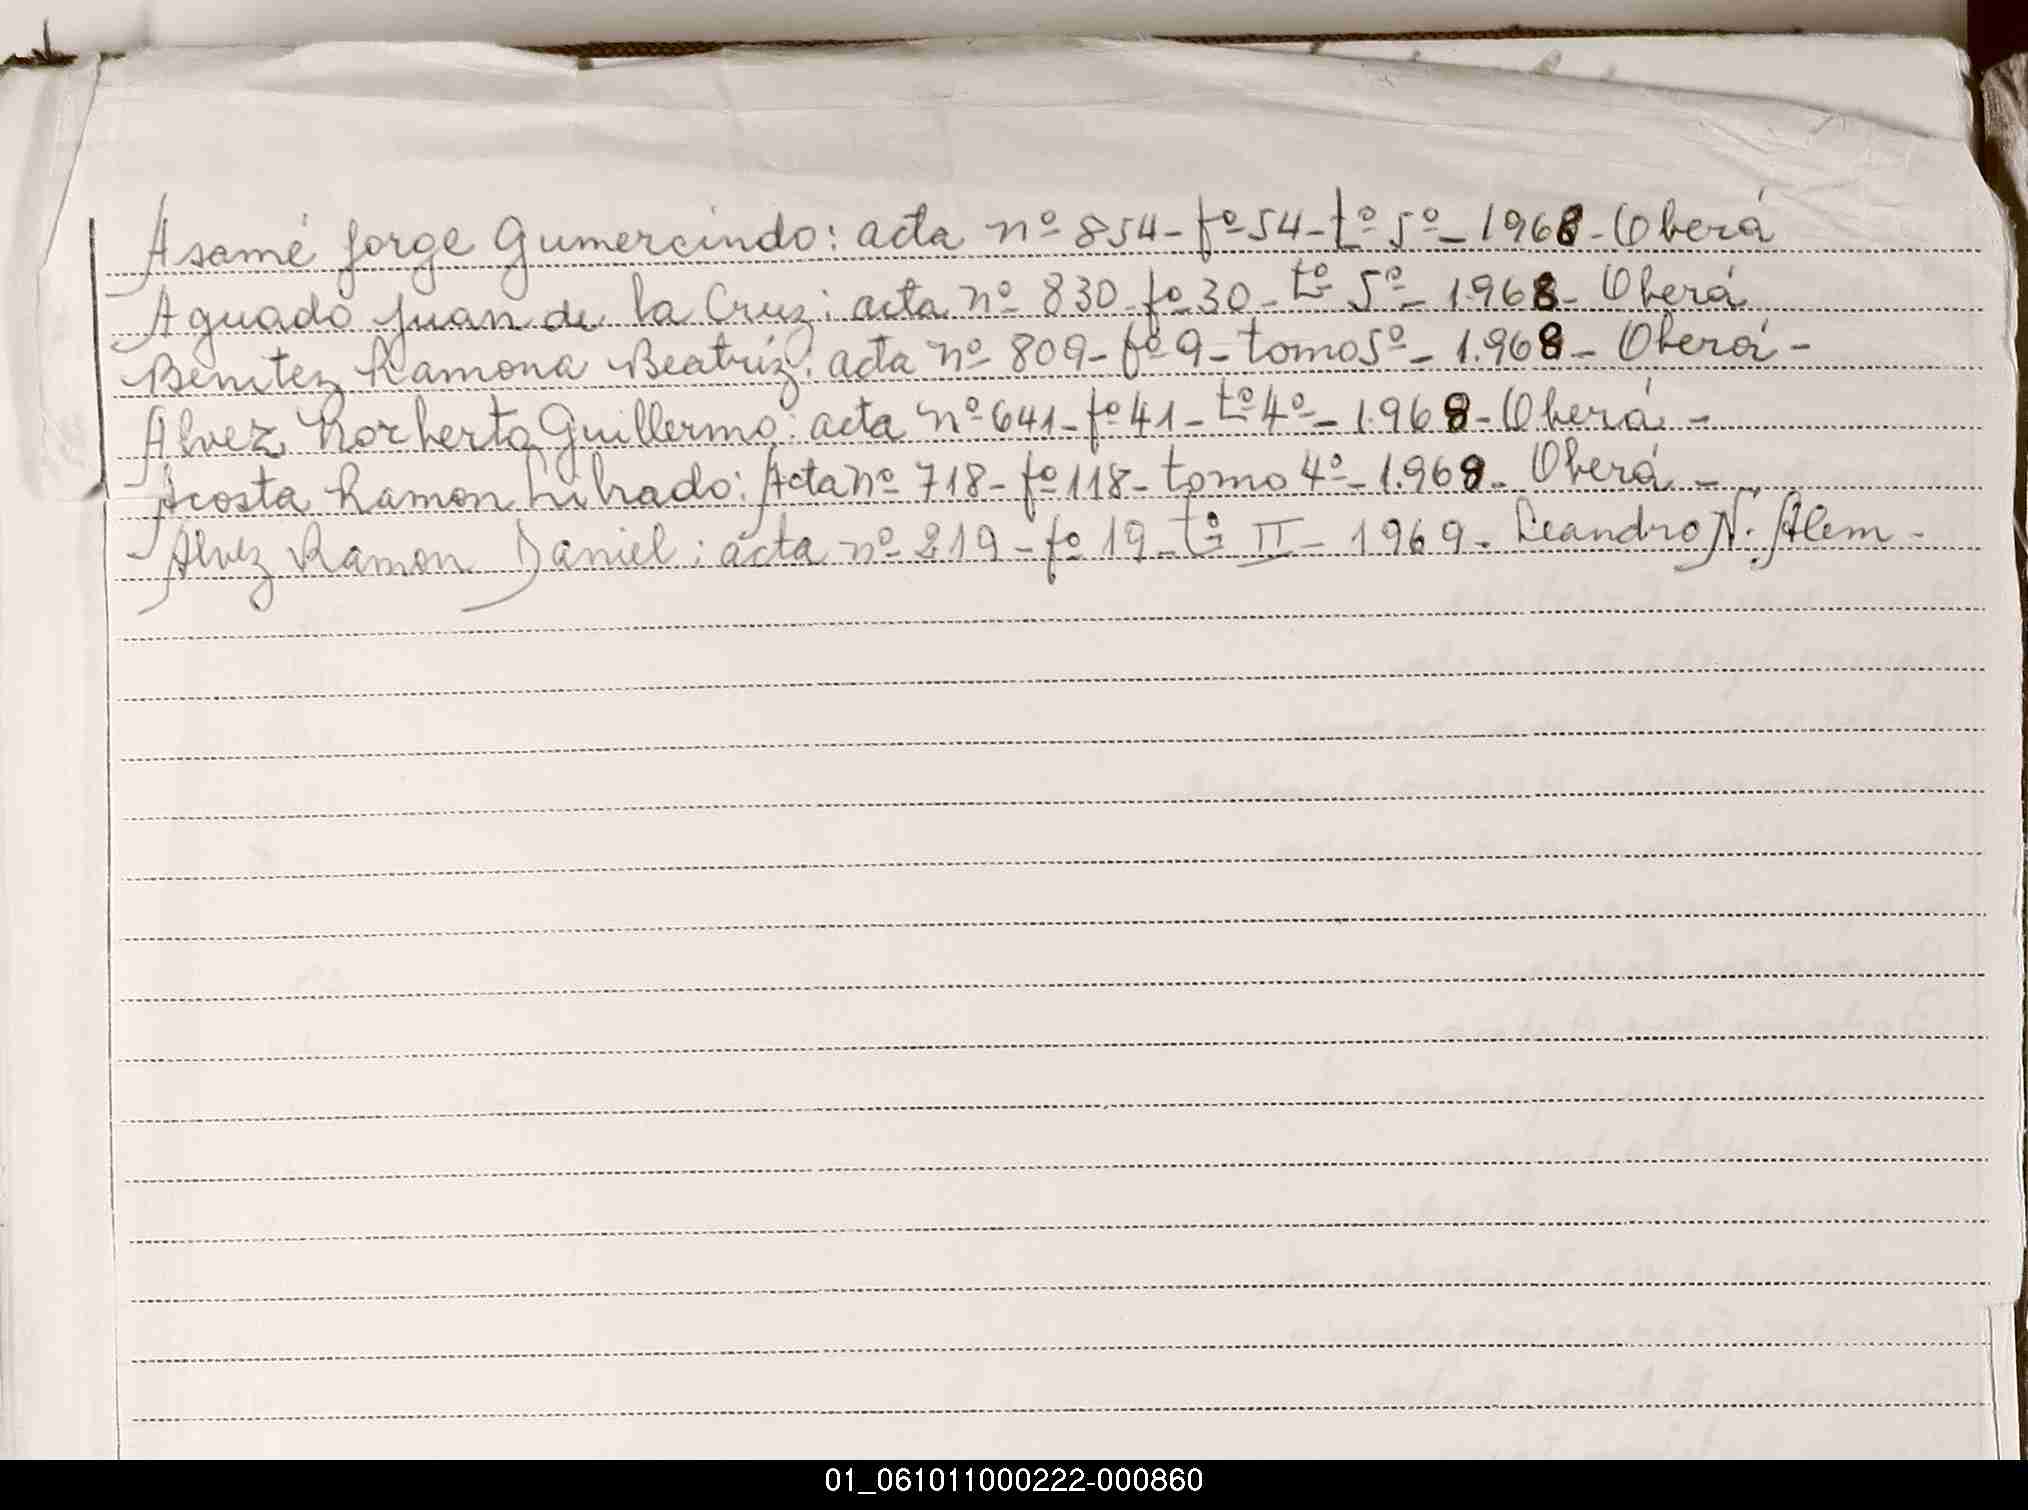 Asamé Jorge Gumercindo: acta nº 854-fº54-tº5º-1968-Oberá
Aguado Juan de la Cruz: acta nº 830-fº30-tº 5º-1.968-Oberá
Benitez Ramona Beatriz: acta nº 809-fº9-tomo5º-1.968-Oberá-
Alvez Norberto Guillermo: acta nº641-fº41-tº4º-1.968-Oberá-
Acosta Ramon Librado: Acta nº 718-fº118-tomo 4º-1.968-Oberá-
Alvez Ramon Daniel: acta nº 219-fº 19-tº II-1969-Leandro N. Alem-
01_061011000222-000860